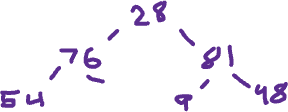 28
76 81
54 9 48